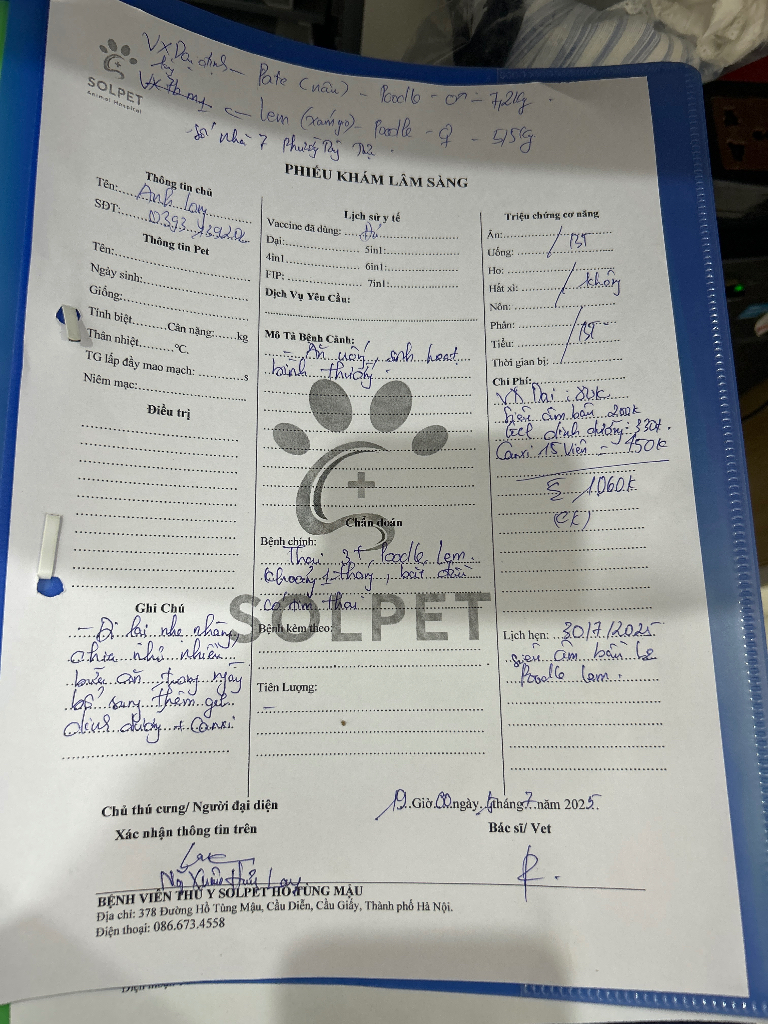 SOLPET
Animal Hospital
VX Dại định - Pate (nâu) - Poodle - cn = 7,2kg
Lem (xám) - Poodle - ♀ - 5,5kg
số nhà 7 Phường Tây
PHIẾU KHÁM LÂM SÀNG
Thông tin chủ
Tên: Anh
SĐT: 0393
Thông tin Pet
Tên:
Ngày sinh:
Giống:
Tính biệt Cân nặng: kg
Thân nhiệt °C.
TG lấp đầy mao mạch: s
Niêm mạc:
Điều trị
Ghi Chú
- Đi lại nhẹ nhàng
chia nhỏ nhiều
bữa ăn trong ngày
bổ sung thêm gel
dinh dưỡng + Canxi
Lịch sử y tế
Vaccine đã dùng: Đủ
Dại: 5in1:
4in1 6in1:
FIP: 7in1:
Dịch Vụ Yêu Cầu:
Mô Tả Bệnh Cảnh:
- Ăn uống, sinh hoạt
bình thường.
Chẩn đoán
Bệnh chính:
Thai 3t, Poodle lem.
khoảng 1 tháng, bắt đầu
có tim thai
SOLPET
Bệnh kèm theo:
Tiên Lượng:
-
Triệu chứng cơ năng
Ăn:
Uống: BT
Ho:
Hắt xì: không
Nôn:
Phân:
Tiểu: BT
Thời gian bị:
Chi Phí:
VX Dại:
siêu âm bầu 200k
Gel dinh dưỡng: 330k
Canxi 15 viên = 150k
Σ 1060k
(CK)
Lịch hẹn: 30/7/2025
siêu âm bầu bé
Poodle lem.
Chủ thú cưng/ Người đại diện
Xác nhận thông tin trên
19 Giờ 00 ngày tháng 7 năm 2025
Bác sĩ/ Vet
BỆNH VIỆN THÚ Y SOLPET HỒ TÙNG MẬU
Địa chỉ: 378 Đường Hồ Tùng Mậu, Cầu Diễn, Cầu Giấy, Thành phố Hà Nội.
Điện thoại: 086.673.4558